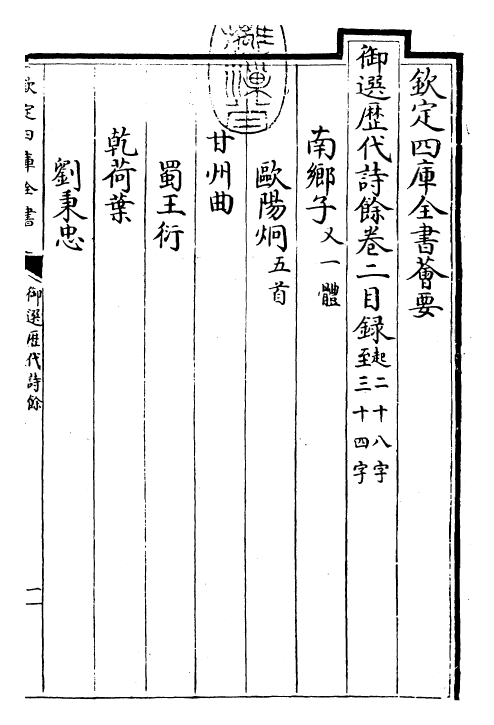 欽定四庫全書薈要
御選歷代詩餘卷二目録起二十八字至三十四字
南鄉子又一體
歐陽炯五首
甘州曲
蜀王衍
乾荷葉
劉秉忠
欽定四庫全書
御選歷代詩餘
一